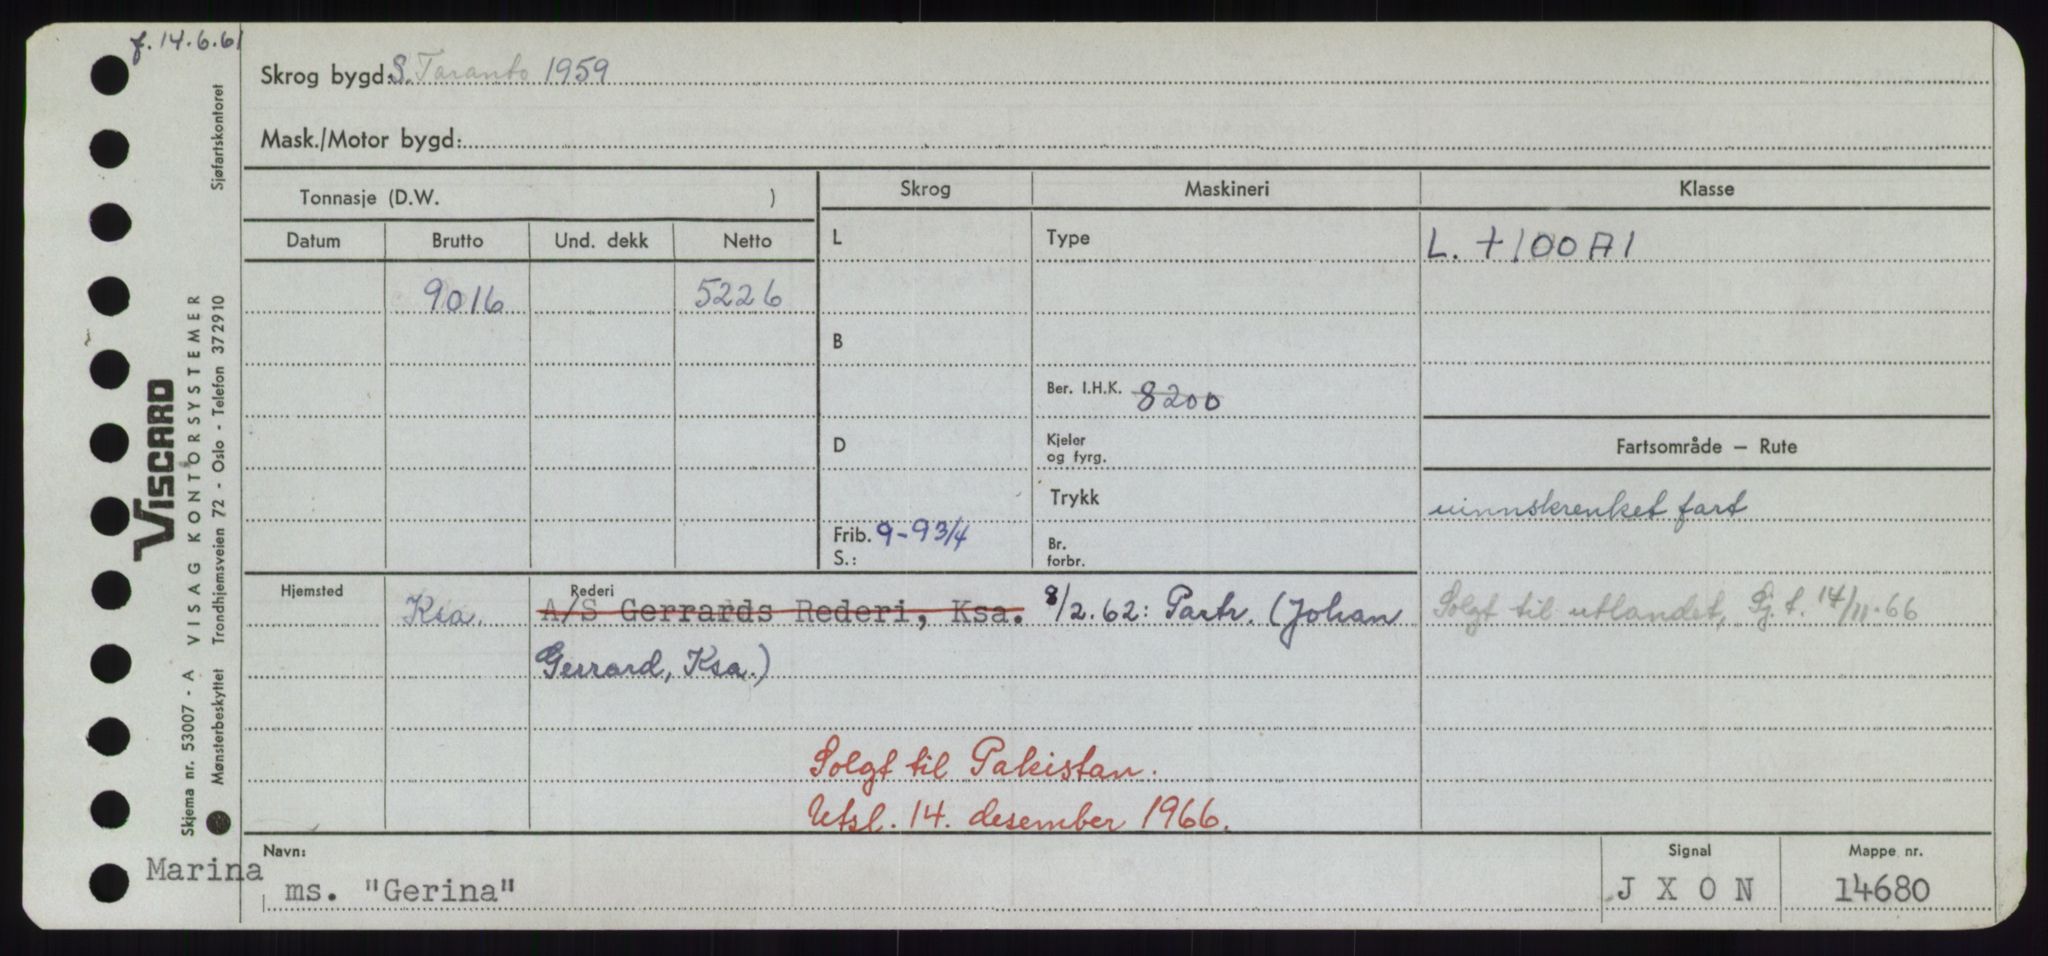 f. 14.6.61
Skrog bygd: S. Taranto 1959
Mask./Motor bygd:
Tonnasje (D.W. )
Skrog
Maskineri
Klasse
Datum
Brutto
Und. dekk
Netto
L
Type
L. + 100 A 1
9016
5226
B
Ber. I.H.K. 8200
D
Kjeler
og fyrg.
Fartsområde – Rute
Trykk
uinnskrenket fart
Frib. 9-9 3/4
S.:
Br.
forbr.
Hjemsted
Ksa.
Rederi
A/S Gerrards Rederi, Ksa. 8/2.62: Partr. (Johan
Gerrard, Ksa.)
Solgt til utlandet, Gj. t. 14/11.66
Solgt til Pakistan.
Utsl. 14. desember 1966.
Navn:
Marina
ms. "Gerina"
Signal
J X O N
Mappe nr.
14680
VISCARD
Skjema nr. 53007 - A VISAG KONTORSYSTEMER
Mønsterbeskyttet Trondhjemsveien 72 - Oslo - Telefon 372910 Sjøfartskontoret